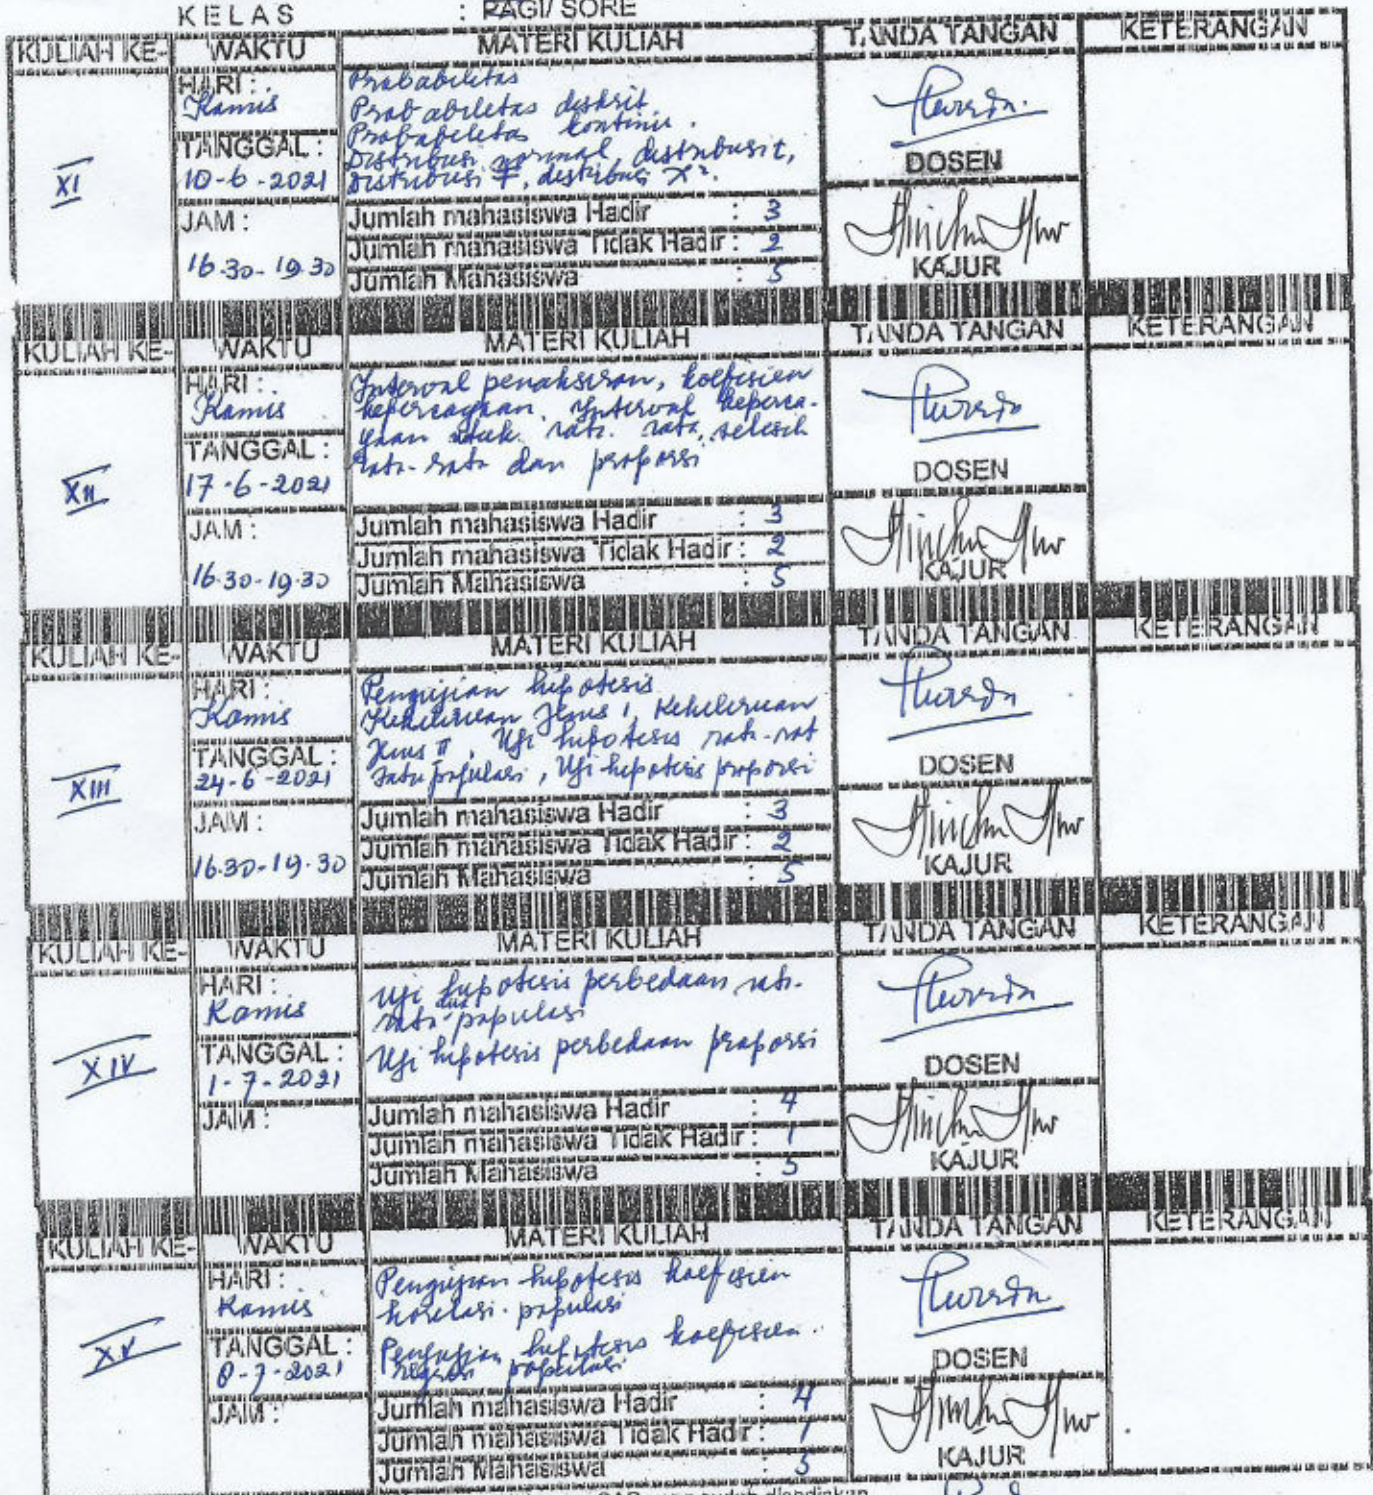 KELAS : PAGI/ SORE
KULIAH KE- WAKTU MATERI KULIAH TANDA TANGAN KETERANGAN
XI
HARI :
Kamis
TANGGAL :
10-6-2021
JAM :
16.30-19.30
Probabilitas
Probabilitas diskrit
Probabilitas kontinu.
Distribusi normal, distribusi t,
Distribusi F, distribusi X².
Jumlah mahasiswa Hadir : 3
Jumlah mahasiswa Tidak Hadir : 2
Jumlah Mahasiswa : 5
DOSEN
KAJUR
KULIAH KE- WAKTU MATERI KULIAH TANDA TANGAN KETERANGAN
XII
HARI :
Kamis
TANGGAL :
17-6-2021
JAM :
16.30-19.30
Interval penaksiran, koefisien
kepercayaan, Interval keperca-
yaan untuk rata-rata, selisih
rata-rata dan proporsi
Jumlah mahasiswa Hadir : 3
Jumlah mahasiswa Tidak Hadir : 2
Jumlah Mahasiswa : 5
DOSEN
KAJUR
KULIAH KE- WAKTU MATERI KULIAH TANDA TANGAN KETERANGAN
XIII
HARI :
Kamis
TANGGAL :
24-6-2021
JAM :
16.30-19.30
Pengujian hipotesis
Kekeliruan Jenis I, Kekeliruan
Jenis II, Uji hipotesis rata-rat
satu populasi, Uji hipotesis proporsi
Jumlah mahasiswa Hadir : 3
Jumlah mahasiswa Tidak Hadir : 2
Jumlah Mahasiswa : 5
DOSEN
KAJUR
KULIAH KE- WAKTU MATERI KULIAH TANDA TANGAN KETERANGAN
XIV
HARI :
Kamis
TANGGAL :
1-7-2021
JAM :
Uji hipotesis perbedaan rata-
rata dua populasi
Uji hipotesis perbedaan proporsi
Jumlah mahasiswa Hadir : 4
Jumlah mahasiswa Tidak Hadir : 1
Jumlah Mahasiswa : 5
DOSEN
KAJUR
KULIAH KE- WAKTU MATERI KULIAH TANDA TANGAN KETERANGAN
XV
HARI :
Kamis
TANGGAL :
8-7-2021
JAM :
Pengujian hipotesis koefisien
korelasi populasi
Pengujian hipotesis koefisien
regresi populasi
Jumlah mahasiswa Hadir : 4
Jumlah mahasiswa Tidak Hadir : 1
Jumlah Mahasiswa : 5
DOSEN
KAJUR